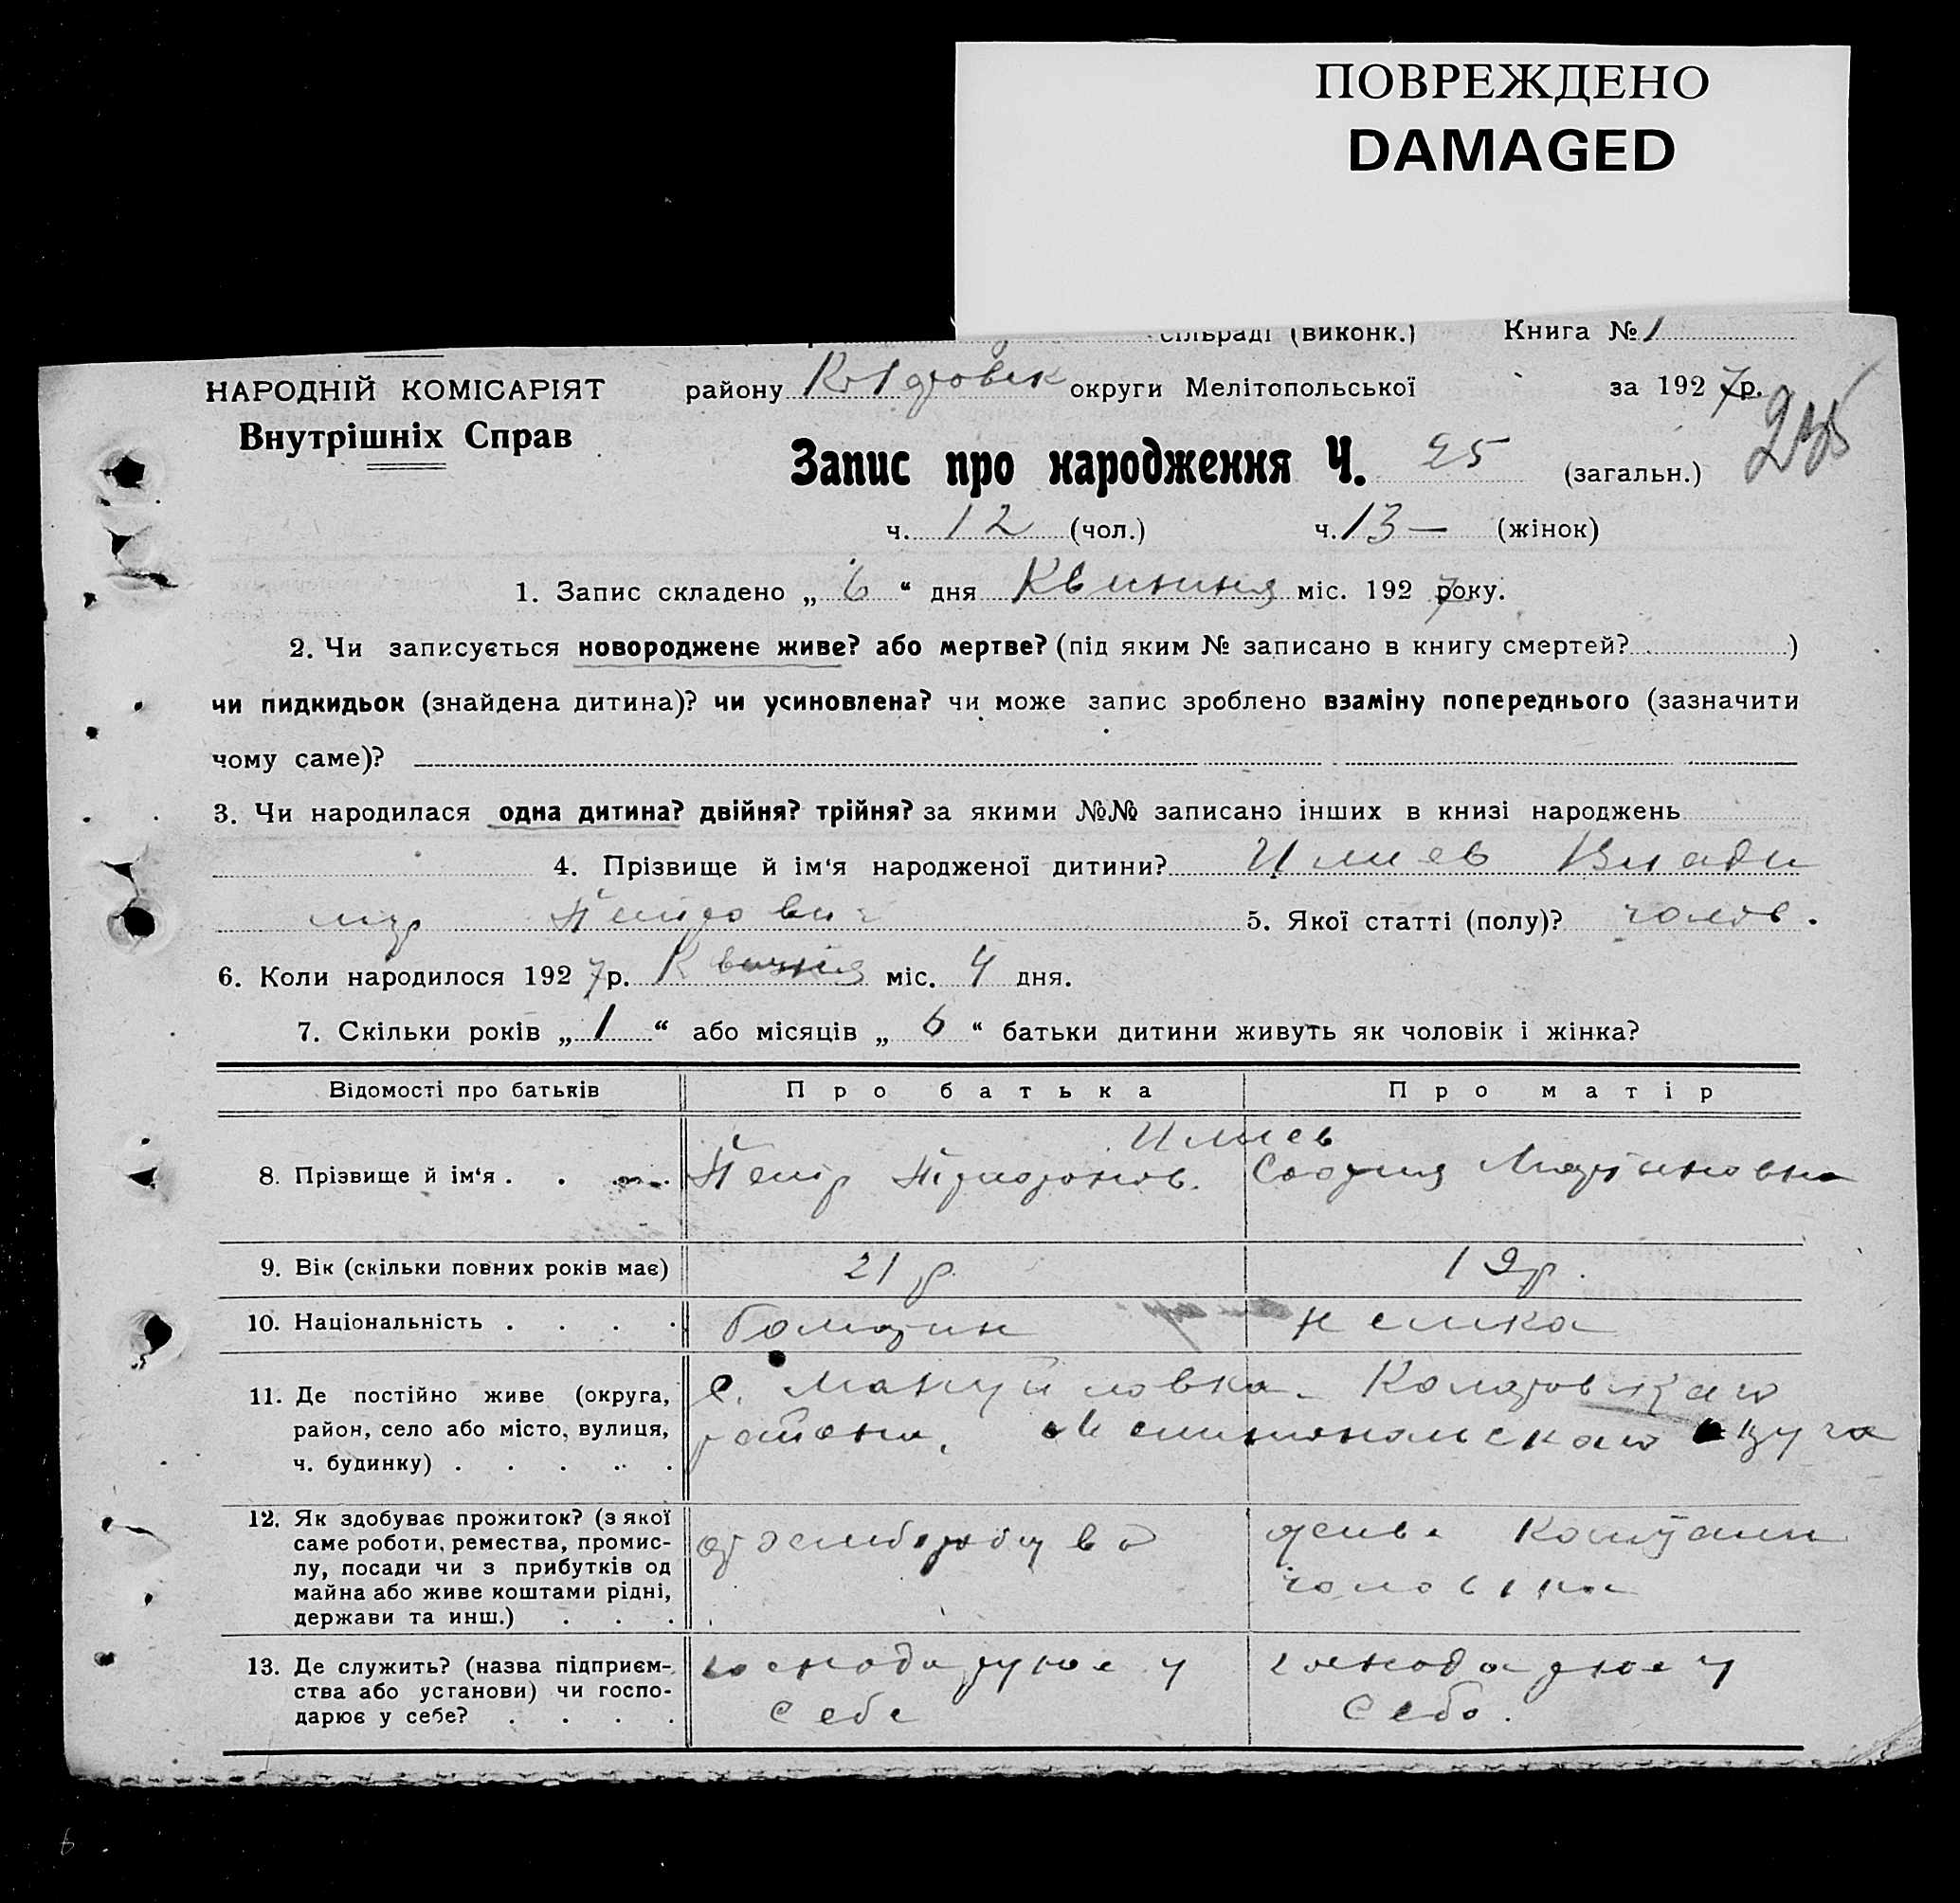 ПОВРЕЖДЕНО
DAMAGED
сільраді (виконк.) Книга № 1
НАРОДНІЙ КОМІСАРІЯТ
Внутрішніх Справ
району округи Мелітопольської за 1927 р.
235
Запис про народження Ч. 25 (загальн.)
ч. 12 (чол.) ч. 13 — (жінок)
1. Запис складено „ 6 “ дня Квитня міс. 1927 року.
2. Чи записується новороджене живе? або мертве? (під яким № записано в книгу смертей? )
чи пидкидьок (знайдена дитина)? чи усиновлена? чи може запис зроблено взаміну попереднього (зазначити
чому саме)?
3. Чи народилася одна дитина? двійня? трійня? за якими №№ записано інших в книзі народжень
4. Прізвище й ім‘я народженої дитини? Илиев Влади
мір Петрович 5. Якої статті (полу)? чолов.
6. Коли народилося 1927 р. Квитня міс. 4 дня.
7. Скільки років „ 1 “ або місяців „ 6 “ батьки дитини живуть як чоловік і жінка?
Відомості про батьків Про батька Про матір
Илиев
8. Прізвище й ім‘я . . . . Петр София Мартиновна
9. Вік (скільки повних років має) 21 р. 19 р.
10. Національність . . . . болгарин немка
11. Де постійно живе (округа,
район, село або місто, вулиця,
ч. будинку) . . . . .
с. Мануйловка
района, Мелитопольскаго округа
12. Як здобуває прожиток? (з якої
саме роботи, ремества, промис-
лу, посади чи з прибутків од
майна або живе коштами рідні,
держави та инш.) . . .
хозлиборобство
живе коштами
чоловіка
13. Де служить? (назва підприєм-
ства або установи) чи госпо-
дарює у себе? . . . .
господарює у
себе
господарює у
себе.